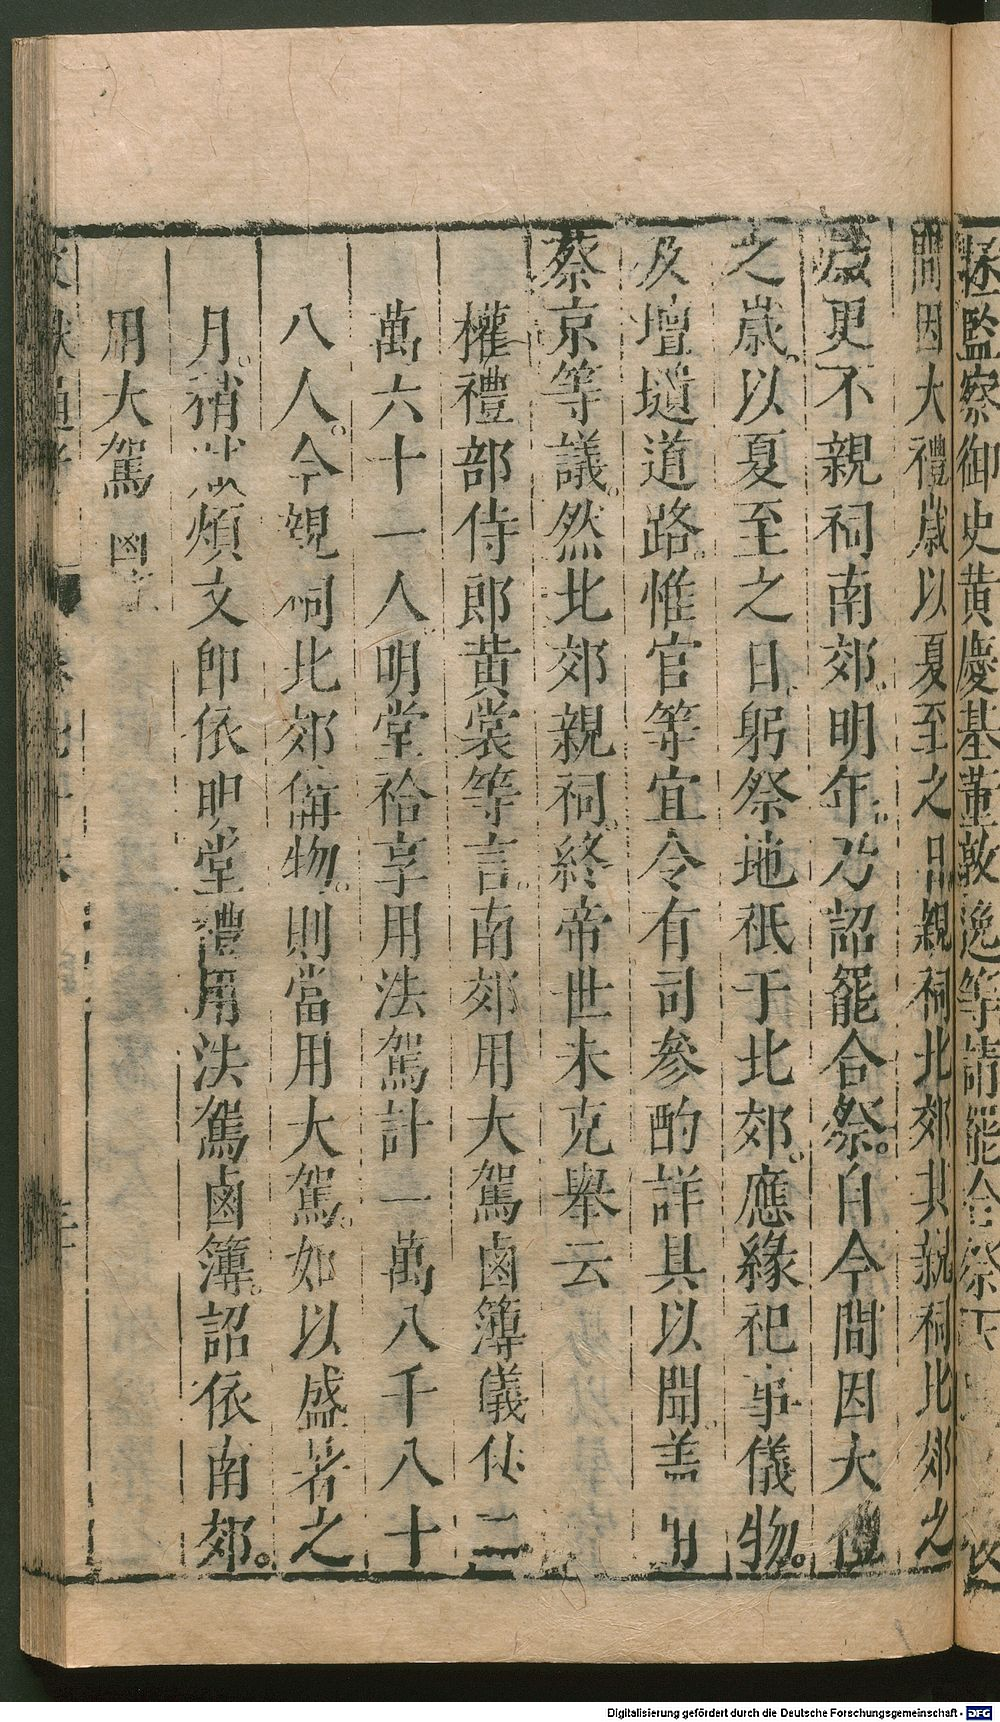 極監察御史黄慶基董敦逸等請罷合祭
間因大禮歲以夏至之日親祠北郊其親祠北郊之
歲更不親祠南郊。明年。乃詔罷合祭。自今間因大禮
之歲。以夏至之日。躬祭地祇于北郊。應緣祀事儀物。
及壇壝道路。惟官等宜令有司參酌詳具以聞。蓋用
蔡京等議。然北郊親祠。終帝世未克舉云
權禮部侍郎黄裳等言。南郊用大駕鹵簿儀仗二
萬六十一人。明堂祫享用法駕計一萬八千八十
八人。今親祠北郊備物。則當用大駕。如以盛暑之
月。稍減煩文即依明堂禮用法駕鹵簿。詔依南郊。
用大駕
文獻通考
Digitalisierung gefördert durch die Deutsche Forschungsgemeinschaft - DFG